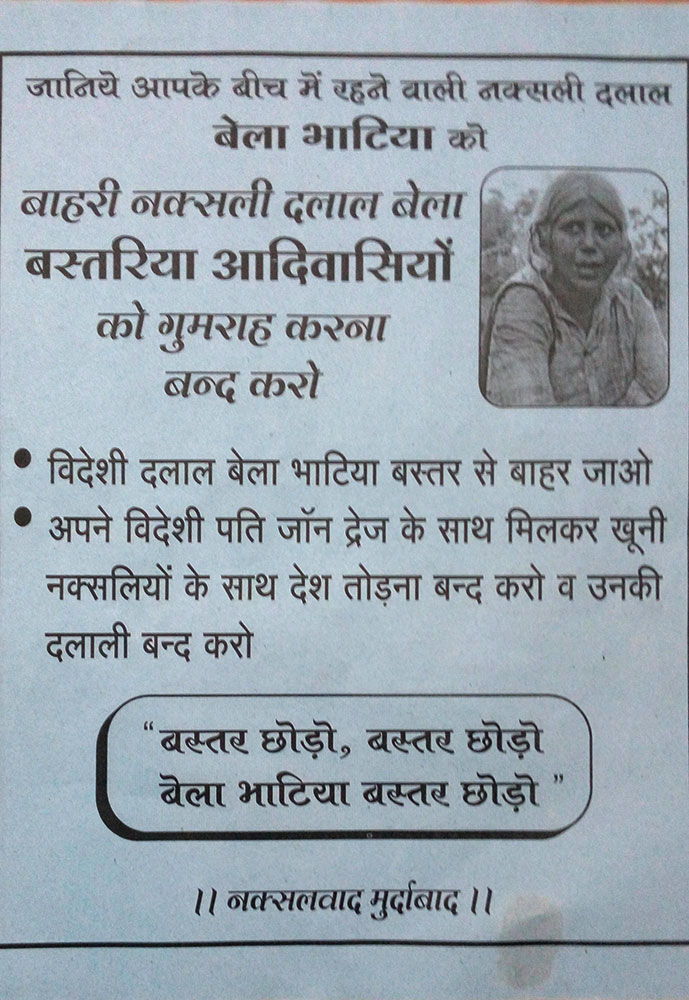 जानिये आपके बीच में रहने वाली नक्सली दलाल
बेला भाटिया को
बाहरी नक्सली दलाल बेला
बस्तरिया आदिवासियों
को गुमराह करना
बन्द करो
• विदेशी दलाल बेला भाटिया बस्तर से बाहर जाओ
• अपने विदेशी पति जॉन द्रेज के साथ मिलकर खूनी
नक्सलियों के साथ देश तोड़ना बन्द करो व उनकी
दलाली बन्द करो
“बस्तर छोड़ो, बस्तर छोड़ो
बेला भाटिया बस्तर छोड़ो ”
।। नक्सलवाद मुर्दाबाद ।।